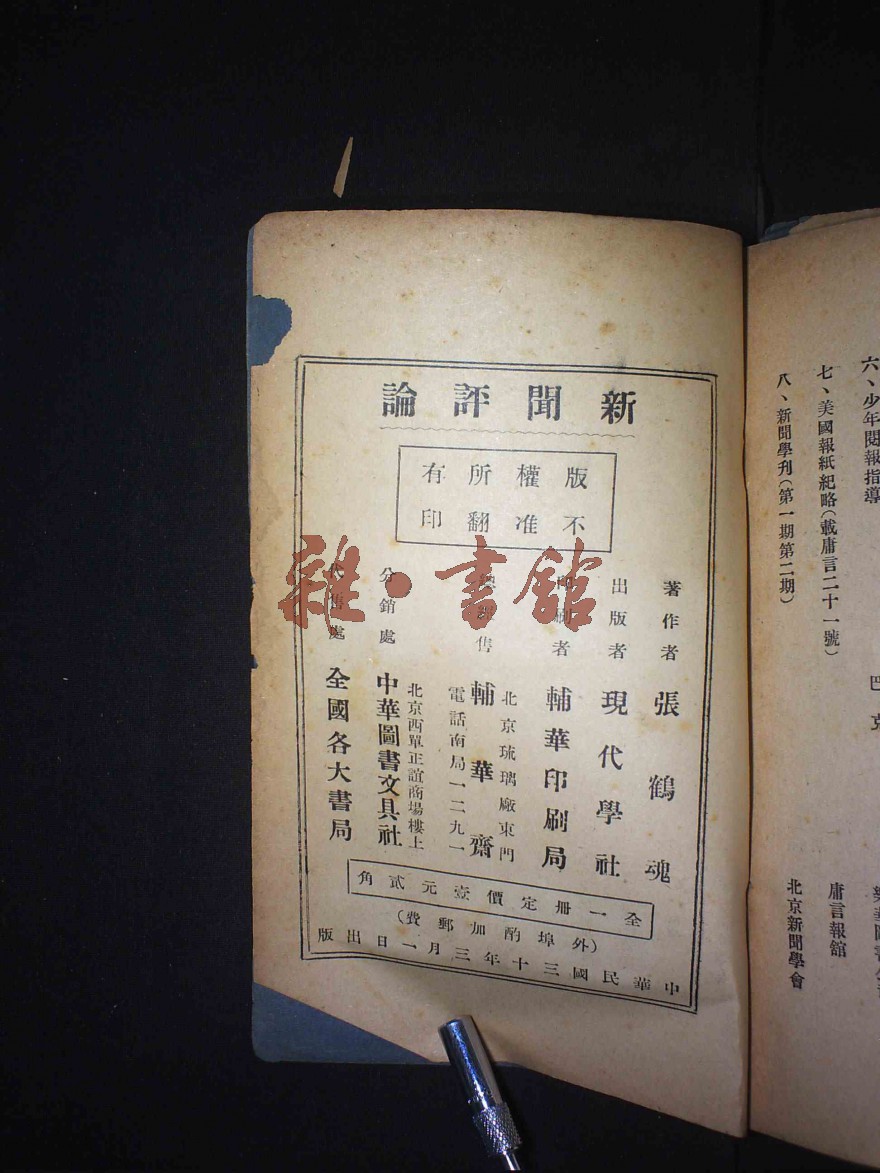 新聞評論
版權所有
不准翻印
著作者 張鶴魂
出版者 現代學社
印刷者 輔華印刷局
北京琉璃廠東門
售 輔華齋
電話南局一二九一
北京西單正誼商場樓上
分銷處 中華圖書文具社
代售處 全國各大書局
全一册定價壹元貳角
(外埠酌加郵費)
中華民國三十年三月一日出版
六、少年閱報指導
七、美國報紙紀略(載庸言二十一號)
庸言報館
八、新聞學刊(第一期第二期)
北京新聞學會
雜·書館